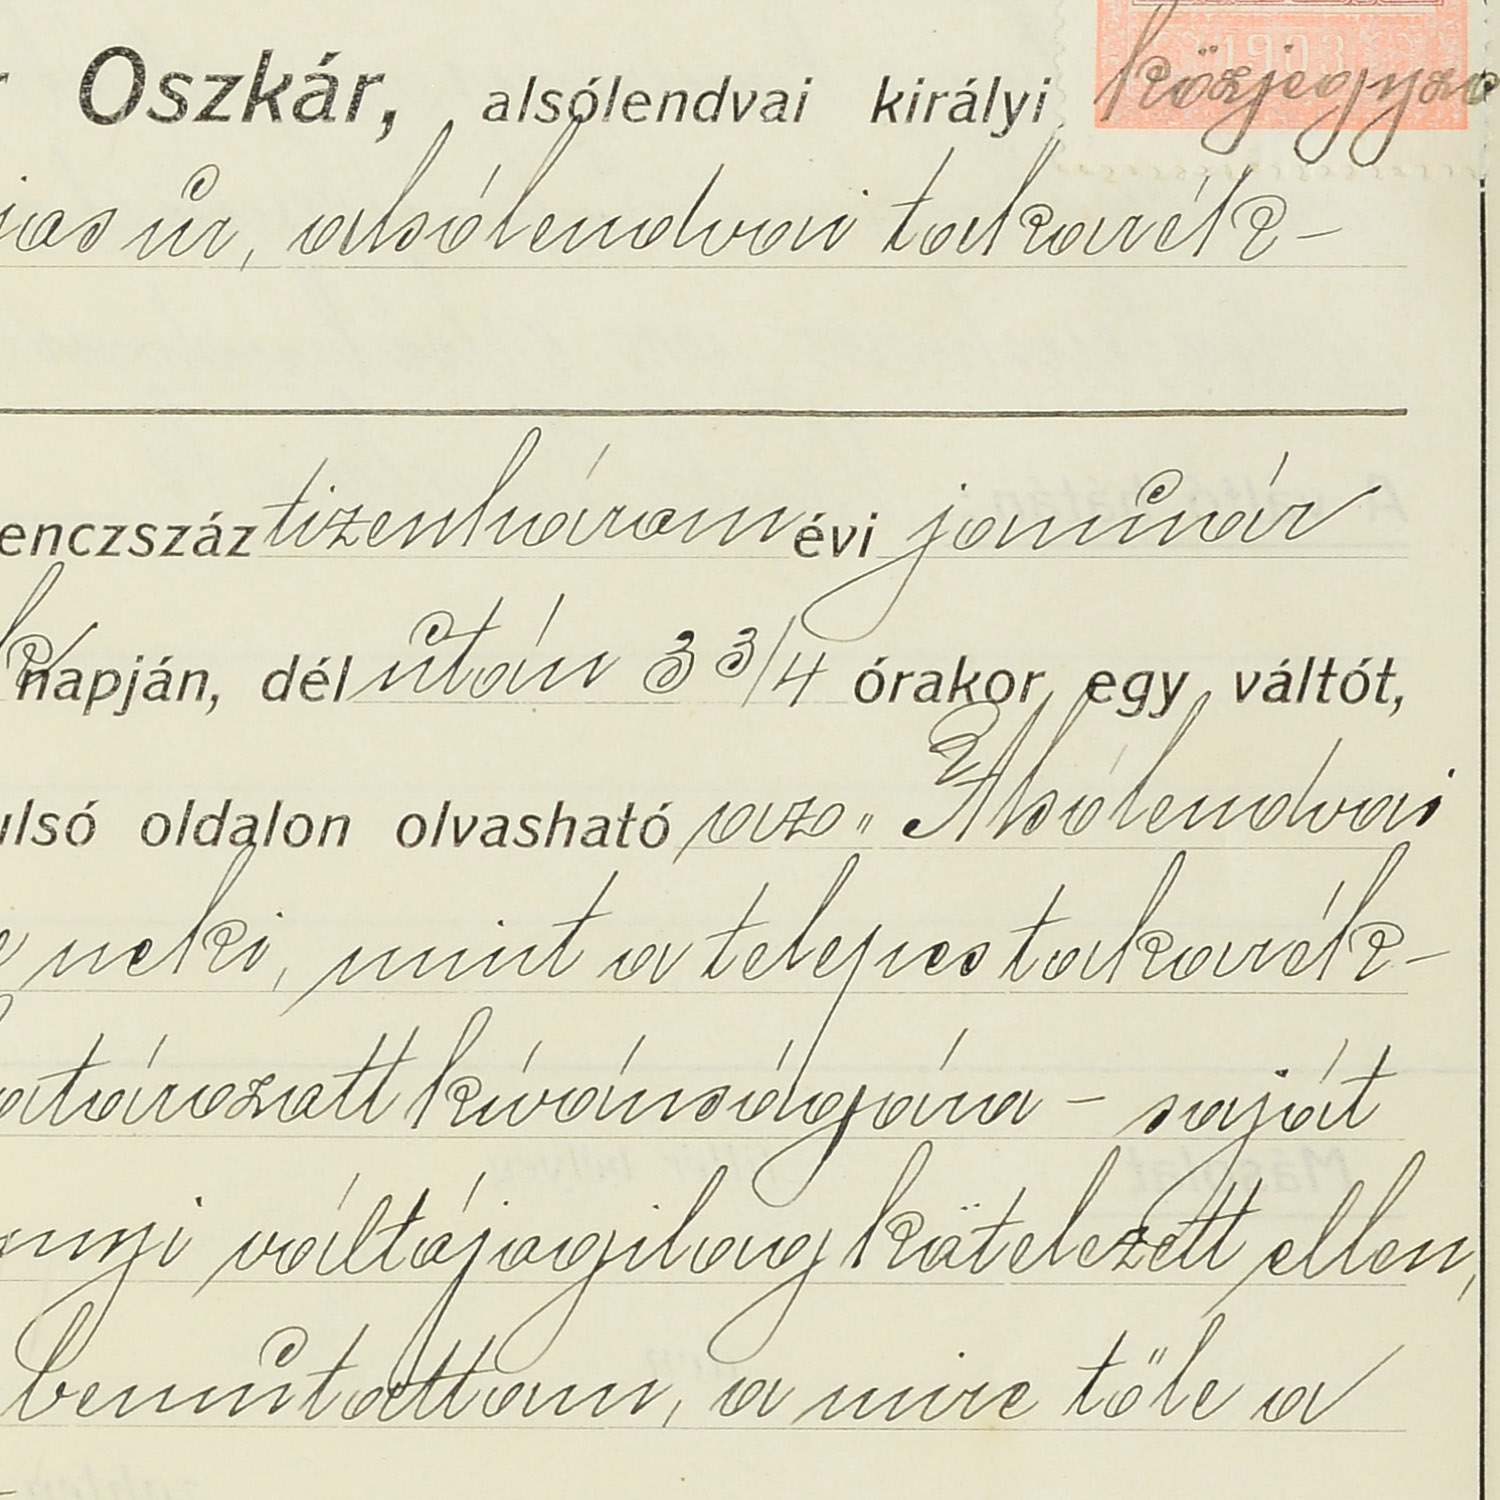 Oszkár, alsólendvai királyi közjegyző
úr, alsólendvai takarék-
enczszáz tizenhárom évi január
napján, dél után 3 3/4 órakor egy váltót,
ulsó oldalon olvasható az „Alsólendvai
neki, mint a telepes takarék-
atározott kívánságára - saját
nnyi váltójogilag kötelezett ellen,
bemutattam, a mire tőle a